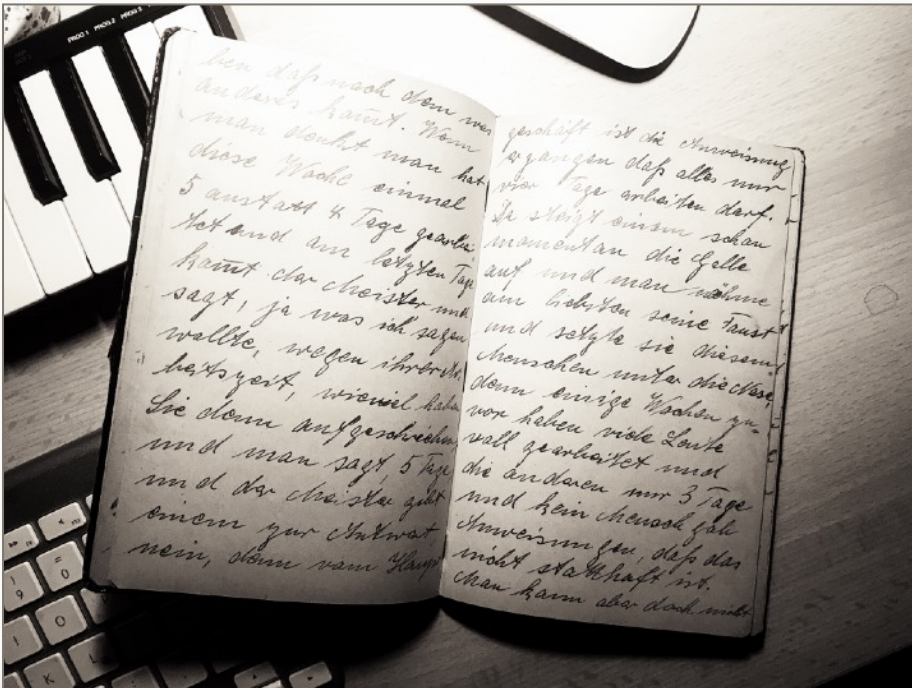 PROG 1 PROG 2 PROG 3
ben daß nach dem was
anderes kom̄t. Wenn
man denkt man hat
diese Woche einmal
5 anstatt 4 Tage gearbei-
tet und am letzten Tage
kom̄t der Meister und
sagt, ja was ich sagen
wollte, wegen ihrer Ar-
beitszeit, wieviel haben
Sie denn aufgeschrieben
und man sagt 5 Tage
und der Meister gibt
einem zur Antwort
nein, denn vom Haupt
geschäft ist die Anweisung
ergangen daß alles nur
vier Tage arbeiten darf.
Da steigt einem schon
momentan die Galle
auf und man nähme
am liebsten seine Faust
und setzte sie diesem
Menschen unter die Nase,
denn einige Wochen zu-
vor haben viele Leute
voll gearbeitet und
die anderen nur 3 Tage
und kein Mensch gab
Anweisungen, daß das
nicht statthaft ist.
Man kann aber doch nicht
9
0
I
O
K
L